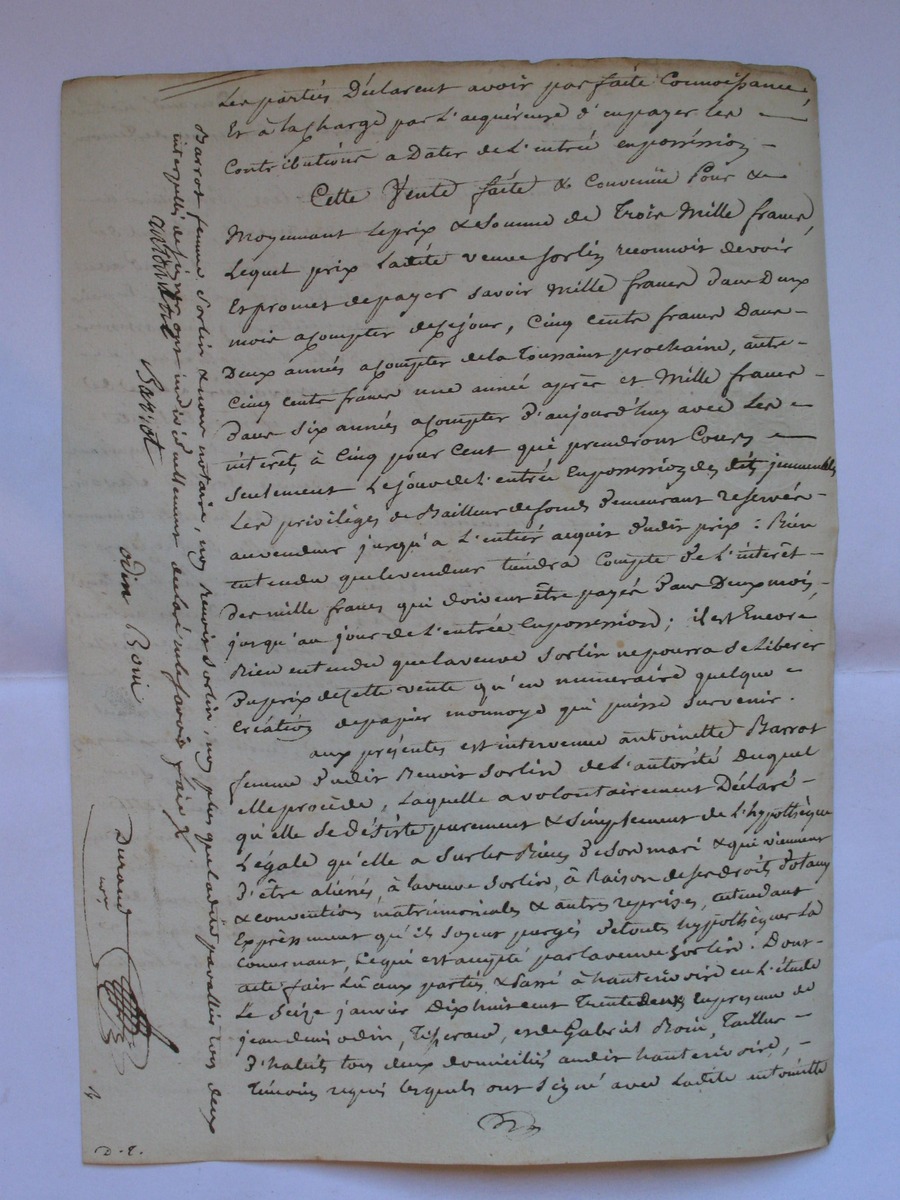 Les parties Déclarent avoir parfaite Connoissance,
Et à la charge par l'acquéreuse d'en payer les
Contributions a Dater de l'entrée en possession
Cette Vente faite & Convenüe Pour &
Moyennant le prix & somme de Trois Mille francs,
Lequel prix Ladite veuve Sorlin reconnoit devoir
Et promet de payer Savoir Mille francs dans Deux
mois a compter de ce jour, Cinq cents francs Dans
Deux années a compter de la Toussaint prochaine, autre
Cinq cents francs une année après et Mille francs
dans six années a compter d'aujourd'huy avec Les
intérêts à Cinq pour Cent qui prendront Cours
Seulement Le jour de l'entrée en possession des dits immeubles
Les privilèges de Bailleur de fonds Demeurant reservés
au vendeur jusqu'a l'entier acquit dudit prix : Bien
entendu que le vendeur tiendra Compte de l'interêt
des mille francs qui doivent être payés Dans Deux mois
jusqu'au jour de l'entrée en possession ; il est Encore
Bien entendu que la veuve Sorlin ne pourra se Liberer
Du prix de cette vente qu'en numeraire quelque
Création de papier monnoye qui puisse Survenir.
aux présentes est intervenue antoinette Barrot
femme dudit Benoit Sorlin de l'autorité Duquel
elle procède, Laquelle a volontairement Déclaré
qu'elle se désiste purement & simplement de l'hypothèque
Légale qu'elle a Sur les Biens de son mari & qui viennent
D'être aliénés, à la veuve Sorlin, à Raison de ses droits Dotaux
& conventions matrimoniales & autres reprises, entendant
Expressément qu'ils soyent purgés de toutes hypothèques La
Concernant, Ce qui est accepté par la veuve Sorlin. Dont
acte fait Lû aux parties & Passé à hauterivoire en l'étude
Le Seize janvier Dix huit cent Trente deux en presence de
jean denis odin, Tisserand, et de Gabriel Boin, Tailleur
D'habits tous deux domiciliés audit hauterivoire,
Témoins requis lesquels ont Signé avec Ladite antoinette
Barrot femme Sorlin & nous notaire, non Benoit Sorlin, non plus que ladite tous deux
interpellés de signer ont individuellement declaré ne le savoir faire
Barrot
odin Boin
Durand
nre
D. E.